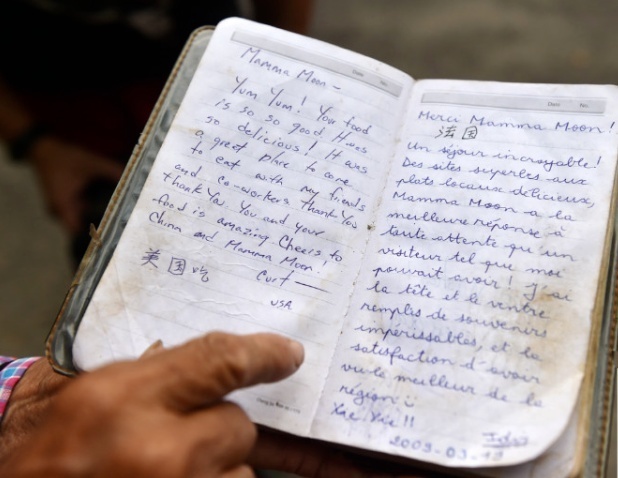 Date No.
Mamma Moon –
Yum Yum! You food
is so so good It was
so delicious! It was
a great place to come
to eat with my friends
and co-workers thank you
thank you. You and your
food is amazing Cheers to
China and Mamma Moon!
Curt —
美国
USA
Date No.
Merci Mamma Moon!
法国
Un séjour incroyable!
Des sites superbes aux
plats locaux délicieux,
Mamma Moon a la
meilleure réponse à
toute attente qu'un
visiteur tel que moi
pouvait avoir! J'ai
la tête et le ventre
remplis de souvenirs
impérissables, et la
satisfaction d'avoir
vu le meilleur de la
région
Xie Xie !!
2009-03-